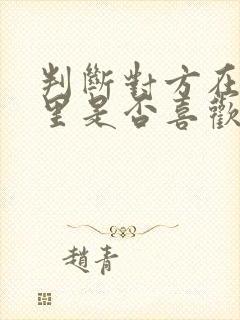 判斷對方在
里是否喜歡
趙青